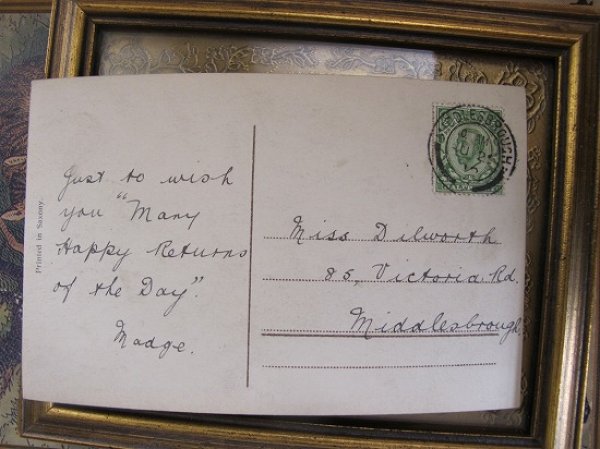 Just to wish
you "Many
Happy Returns
of the Day".
Madge.
Printed in Saxony.
MIDDLESBROUGH
Miss Dilworth
85, Victoria Rd.
Middlesbrough